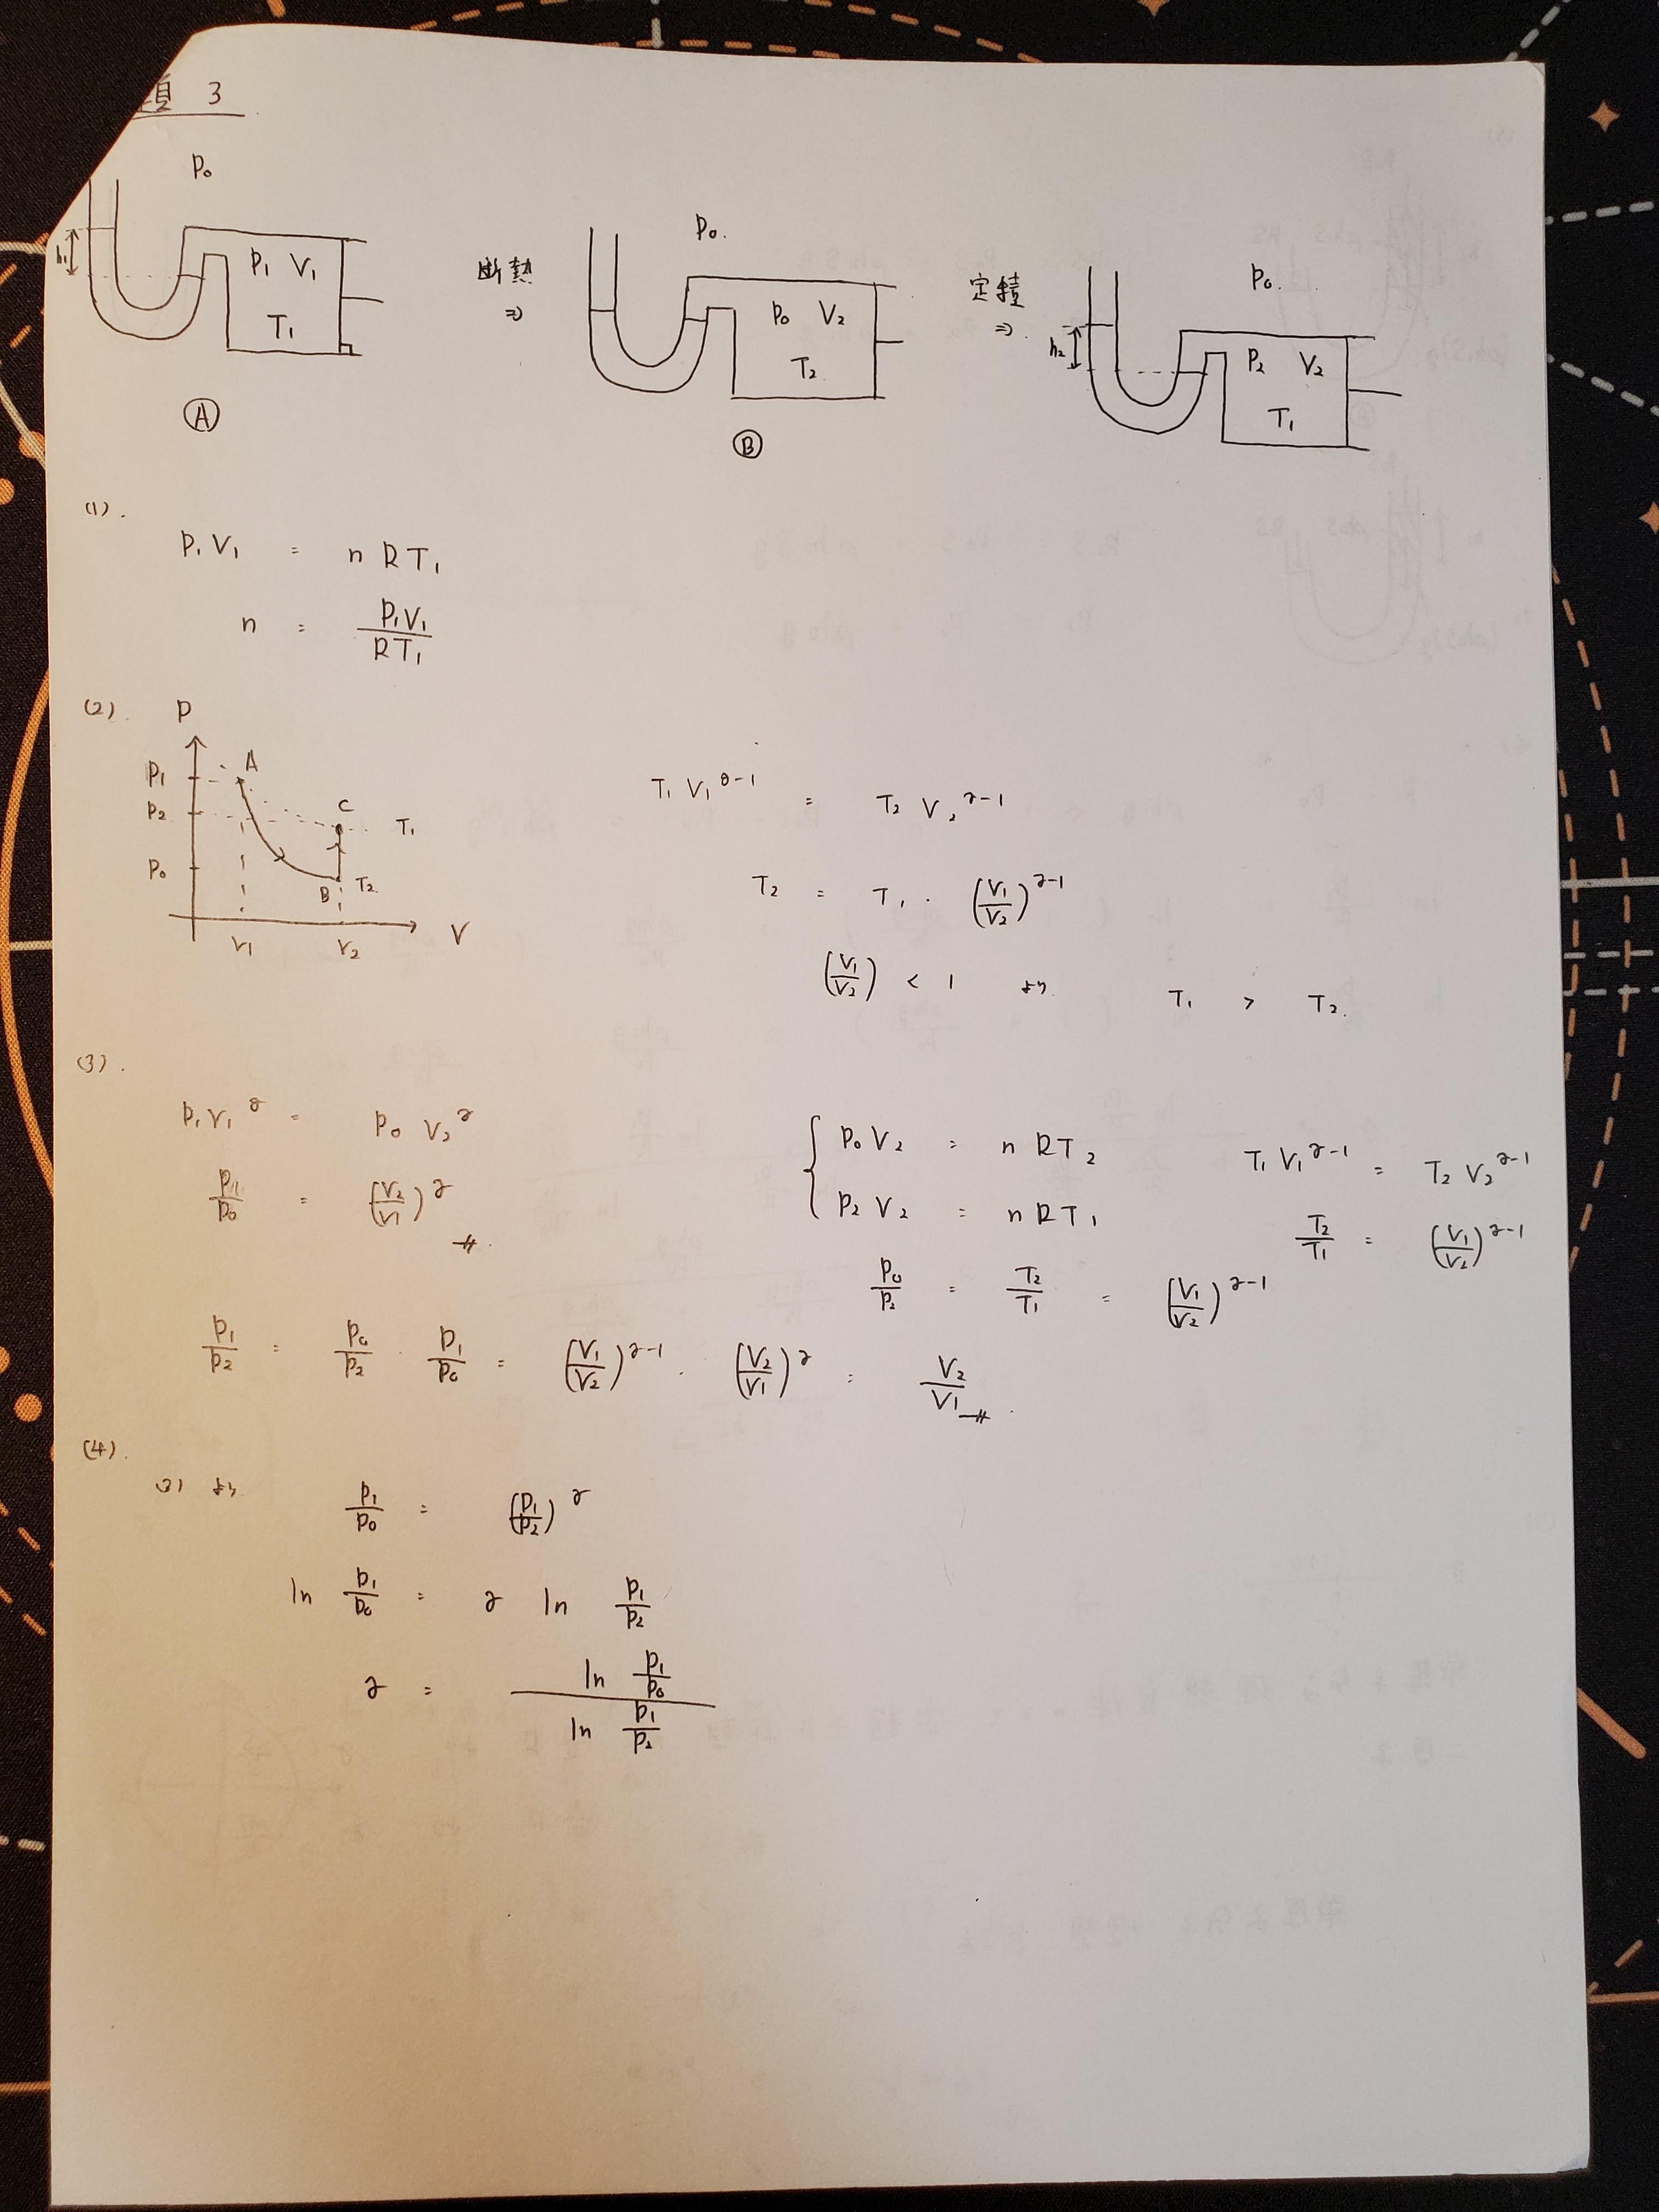 題 3
P₀
h₁
P₁ V₁
T₁
Ⓐ
断熱
⇒
P₀.
P₀ V₂
T₂
Ⓑ
定積
⇒
P₀.
h₂
P₂ V₂
T₁
(1).
P₁V₁ = nRT₁
n = P₁V₁/RT₁
(2).
P
P₁
P₂
P₀
A
C
T₁
B
T₂
V₁
V₂
V
T₁V₁^(γ-1) = T₂V₂^(γ-1)
T₂ = T₁・(V₁/V₂)^(γ-1)
(V₁/V₂) < 1 より T₁ > T₂.
(3).
P₁V₁^γ = P₀V₂^γ
P₁/P₀ = (V₂/V₁)^γ
{ P₀V₂ = nRT₂
P₂V₂ = nRT₁
T₁V₁^(γ-1) = T₂V₂^(γ-1)
T₂/T₁ = (V₁/V₂)^(γ-1)
P₀/P₂ = T₂/T₁ = (V₁/V₂)^(γ-1)
P₁/P₂ = P₀/P₂ ・ P₁/P₀ = (V₁/V₂)^(γ-1) ・ (V₂/V₁)^γ = V₂/V₁
(4).
(3) より P₁/P₀ = (P₁/P₂)^γ
ln P₁/P₀ = γ ln P₁/P₂
γ = ln P₁/P₀ / ln P₁/P₂